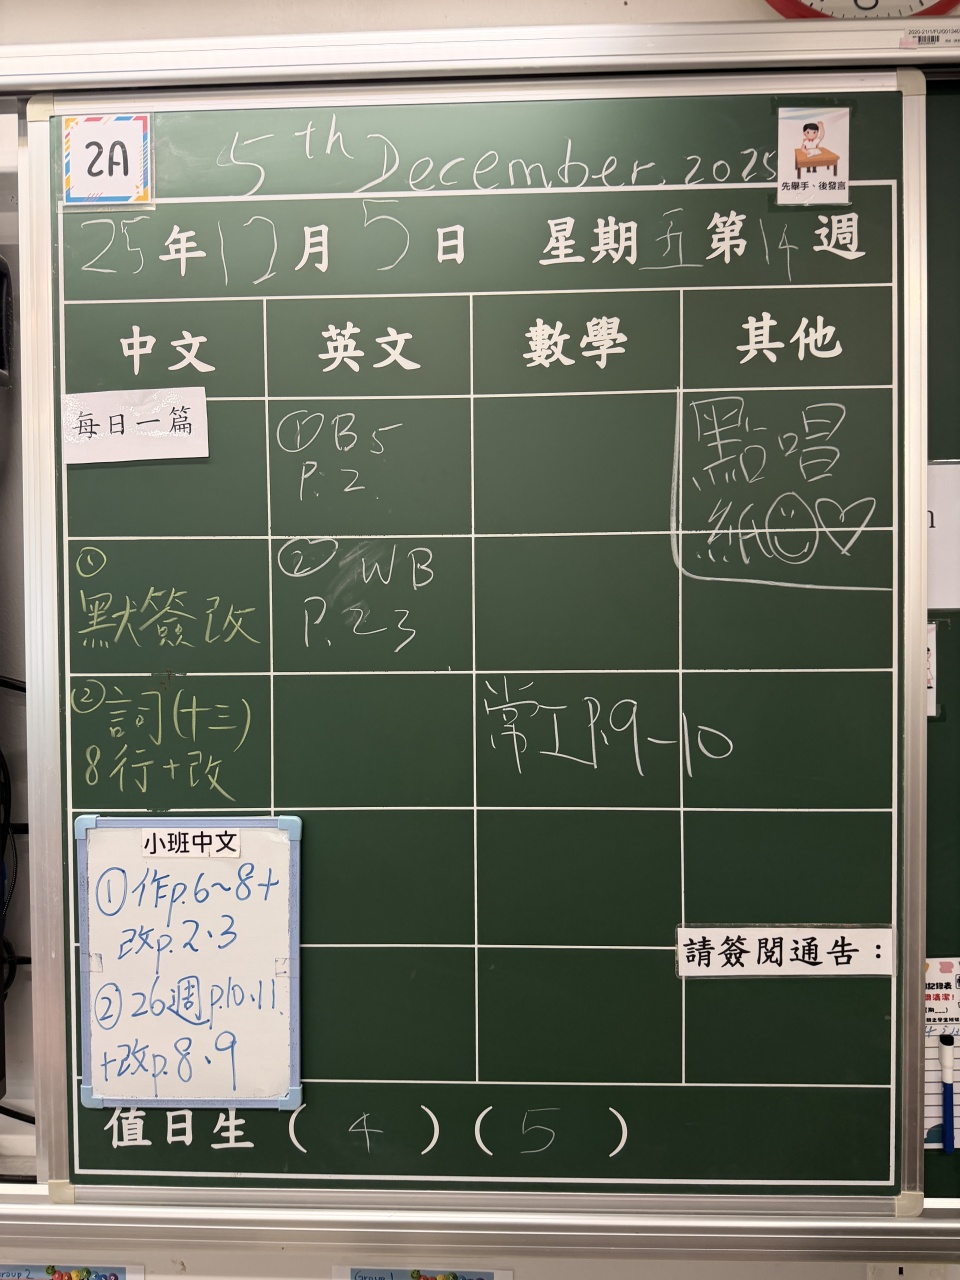 2A
5th December, 2025
先舉手、後發言
25年12月5日 星期五第14週
中文 英文 數學 其他
每日一篇
① B5
P. 2
點唱
紙
①
默簽改
② WB
P. 23
② 詞(十三)
8行+改
常工P.9-10
小班中文
①作p.6~8+
改p.2、3
②26週p.10、11
+改p.8、9
請簽閱通告：
值日生 ( 4 ) ( 5 )
Group 2
Group 1